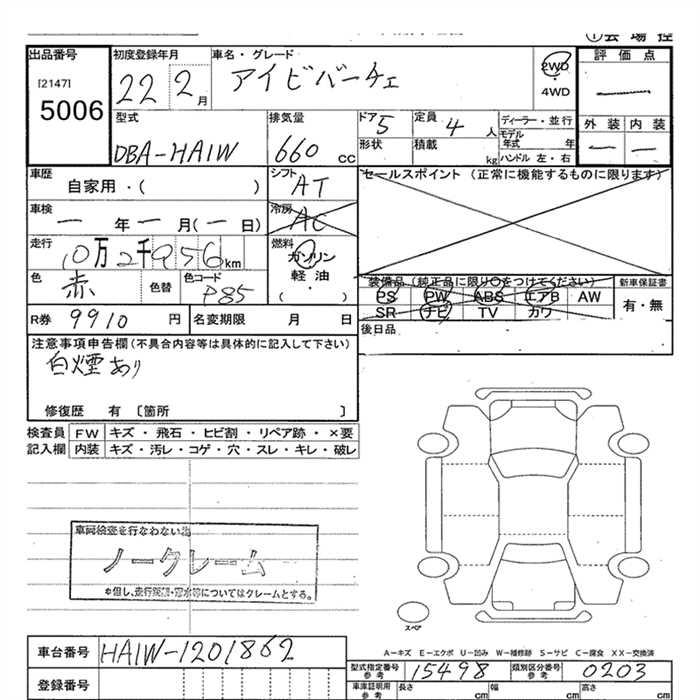 ①会場控
出品番号 初度登録年月 車名・グレード 評価点
[2147] 5006 22 2月 アイビバーチェ 2WD・4WD —
外装 内装
型式 排気量 ドア 5 定員 4人 ディーラー・並行
DBA-HA1W 660 cc 形状 積載 kg モデル年式 年 — —
ハンドル 左・右
車歴 自家用・( ) シフト AT セールスポイント(正常に機能するものに限ります)
車検 — 年 — 月(— 日) 冷房 AC
走行 10万2千956km 燃料 ガソリン 軽油 ・( )
色 赤 色替 色コード P85 装備品(純正品に限り○をつけてください) 新車保証書
PS PW ABS エアB AW 有・無
R券 9910 円 名変期限 月 日 SR ナビ TV カワ
注意事項申告欄(不具合内容等は具体的に記入して下さい) 後日品
白煙あり
修復歴 有 〔箇所 〕
検査員 FW キズ・飛石・ヒビ割・リペア跡・×要
記入欄 内装 キズ・汚レ・コゲ・穴・スレ・キレ・破レ
車両検査を行なわない為
ノークレーム
※但し、走行距離・冠水等についてはクレームとする。
スペア
A-キズ E-エクボ U-凹み W-補修跡 S-サビ C-腐食 XX-交換済
車台番号 HA1W-1201862 型式指定番号 参考 15498 類別区分番号 参考 0203
登録番号 車庫証明用 参考 長さ cm 幅 cm 高さ cm